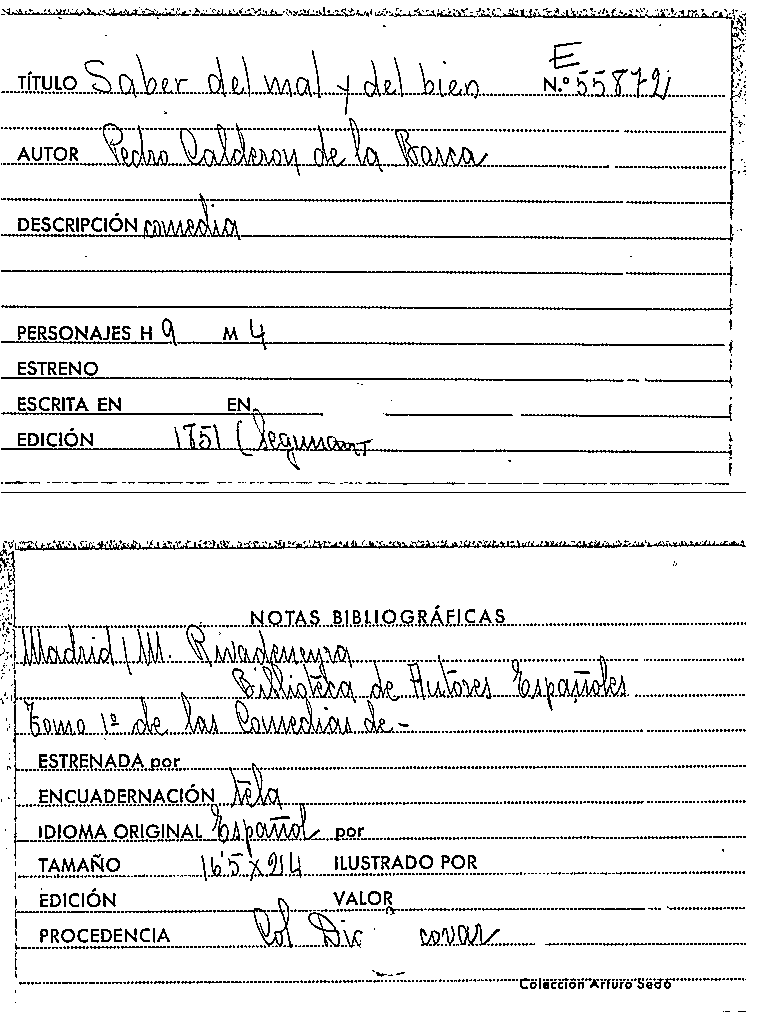 E
TÍTULO Saber del mal y del bien N.º 55872
AUTOR Pedro Calderon de la Barca
DESCRIPCIÓN comedia
PERSONAJES H 9 M 4
ESTRENO
ESCRITA EN EN
EDICIÓN 1851 (
NOTAS BIBLIOGRÁFICAS
Madrid / M. Rivadeneyra
Biblioteca de Autores Españoles
Tomo 1º de las Comedias de -
ESTRENADA por
ENCUADERNACIÓN tela
IDIOMA ORIGINAL Español por
TAMAÑO 16'5 X 24 ILUSTRADO POR
EDICIÓN VALOR
PROCEDENCIA Col
Colección Arturo Sedó